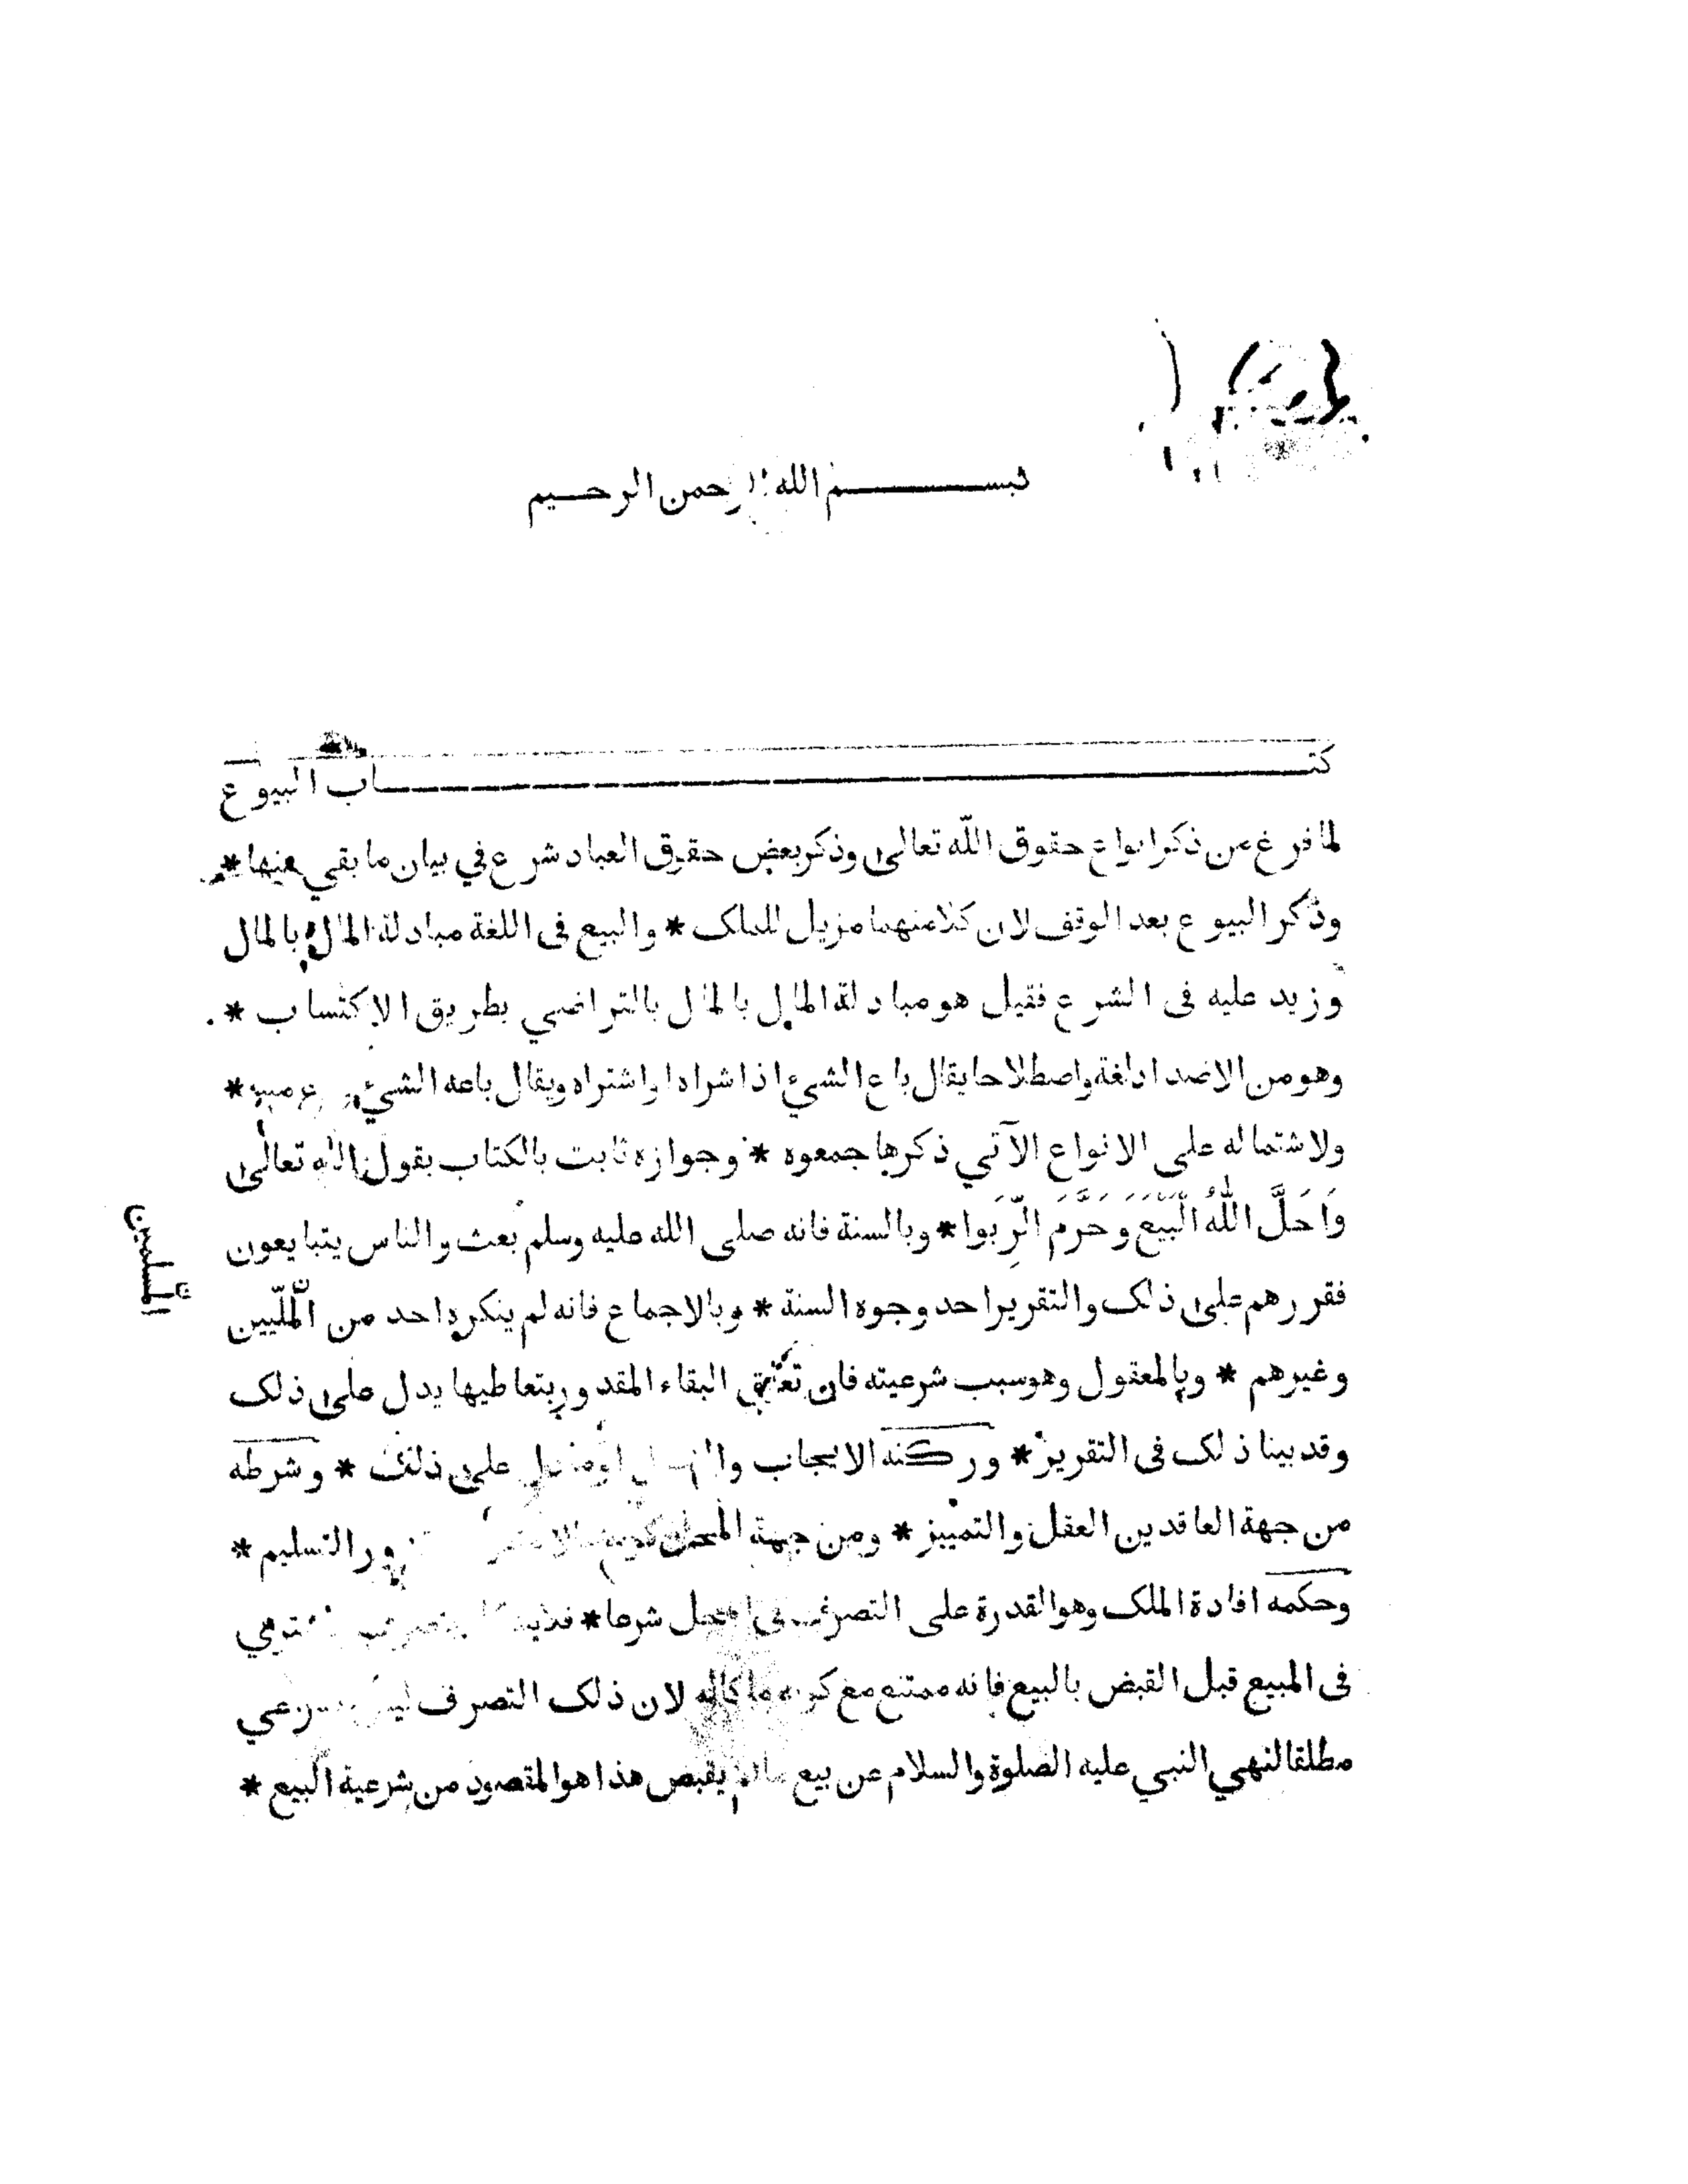 بسم الله الرحمن الرحيم
كتاب البيوع
لما فرغ من ذكر انواع حقوق اللّه تعالى وذكر بعض حقوق العباد شرع في بيان ما بقي منها *
وذكر البيوع بعد الوقف لان كلا منهما مزيل للملك * والبيع في اللغة مبادلة المال بالمال
وزيد عليه في الشرع فقيل هو مبادلة المال بالمال بالتراضي بطريق الاكتساب *
وهو من الاضداد لغة واصطلاحا يقال باع الشيء اذا شراه او اشتراه ويقال باعه الشيء
ولاشتماله على الانواع الآتي ذكرها جمعوه * وجوازه ثابت بالكتاب بقول الله تعالى
وَاَحَلَّ اللّٰهُ الْبَيْعَ وَحَرَّمَ الرِّبَوا * وبالسنة فانه صلى الله عليه وسلم بعث والناس يتبايعون
فقررهم على ذلك والتقرير احد وجوه السنة * وبالاجماع فانه لم ينكره احد من الملّيين
المسلمين
وغيرهم * وبالمعقول وهو سبب شرعيته فان تعلق البقاء المقدور بتعاطيها يدل على ذلك
وقد بينا ذلك في التقرير * وركنه الايجاب على ذلك * وشرطه
من جهة العاقدين العقل والتمييز * ومن جهة المحل والتسليم *
وحكمه افادة الملك وهو القدرة على التصرف في المحل شرعا *
في المبيع قبل القبض بالبيع فانه ممتنع مع لان ذلك التصرف
مطلقا لنهي النبي عليه الصلوة والسلام عن بيع مالم يقبض هذا هو المقصود من شرعية البيع *